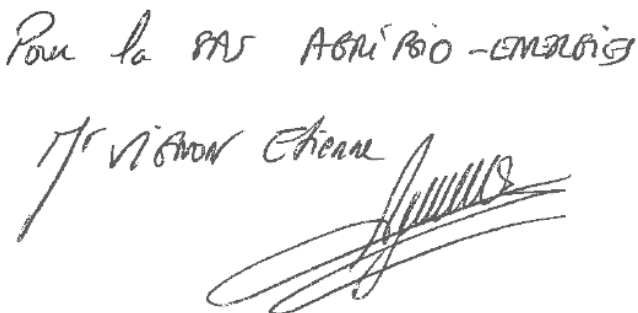 Pour la SAS AGRI BIO-ENERGIES
Mr VIGNON Etienne